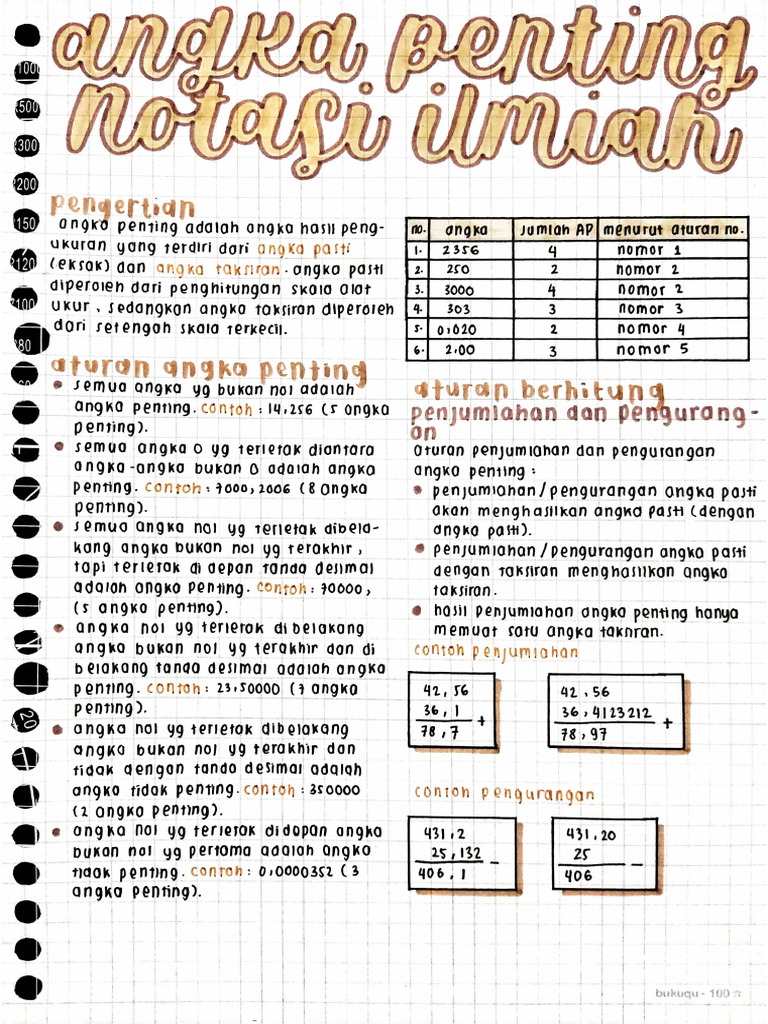 angka penting
notasi ilmiah
pengertian
angka penting adalah angka hasil peng-
ukuran yang terdiri dari angka pasti
(eksak) dan angka taksiran. angka pasti
diperoleh dari penghitungan skala alat
ukur, sedangkan angka taksiran diperoleh
dari setengah skala terkecil.
aturan angka penting
• semua angka yg bukan nol adalah
angka penting. contoh : 14,256 (5 angka
penting).
• semua angka 0 yg terletak diantara
angka-angka bukan 0 adalah angka
penting. contoh : 7000,2006 (8 angka
penting).
• semua angka nol yg terletak dibela-
kang angka bukan nol yg terakhir,
tapi terletak di depan tanda desimal
adalah angka penting. contoh : 70000,
(5 angka penting).
• angka nol yg terletak di belakang
angka bukan nol yg terakhir dan di
belakang tanda desimal adalah angka
penting. contoh : 23,50000 (7 angka
penting).
• angka nol yg terletak dibelakang
angka bukan nol yg terakhir dan
tidak dengan tanda desimal adalah
angka tidak penting. contoh : 350000
(2 angka penting).
• angka nol yg terletak didapan angka
bukan nol yg pertama adalah angka
tidak penting. contoh : 0,0000352 (3
angka penting).
no. angka jumlah AP menurut aturan no.
1. 2356 4 nomor 1
2. 250 2 nomor 2
3. 3000 4 nomor 2
4. 303 3 nomor 3
5. 0,020 2 nomor 4
6. 2.00 3 nomor 5
aturan berhitung
penjumlahan dan pengurang-
an
aturan penjumlahan dan pengurangan
angka penting :
• penjumlahan/pengurangan angka pasti
akan menghasilkan angka pasti (dengan
angka pasti).
• penjumlahan/pengurangan angka pasti
dengan taksiran menghasilkan angka
taksiran.
• hasil penjumlahan angka penting hanya
memuat satu angka
contoh penjumlahan
42,56
36,1
+
78,7
42,56
36,4123212
+
78,97
contoh pengurangan
431,2
25,132
-
406,1
431,20
25
-
406
bukuqu - 100 ☆